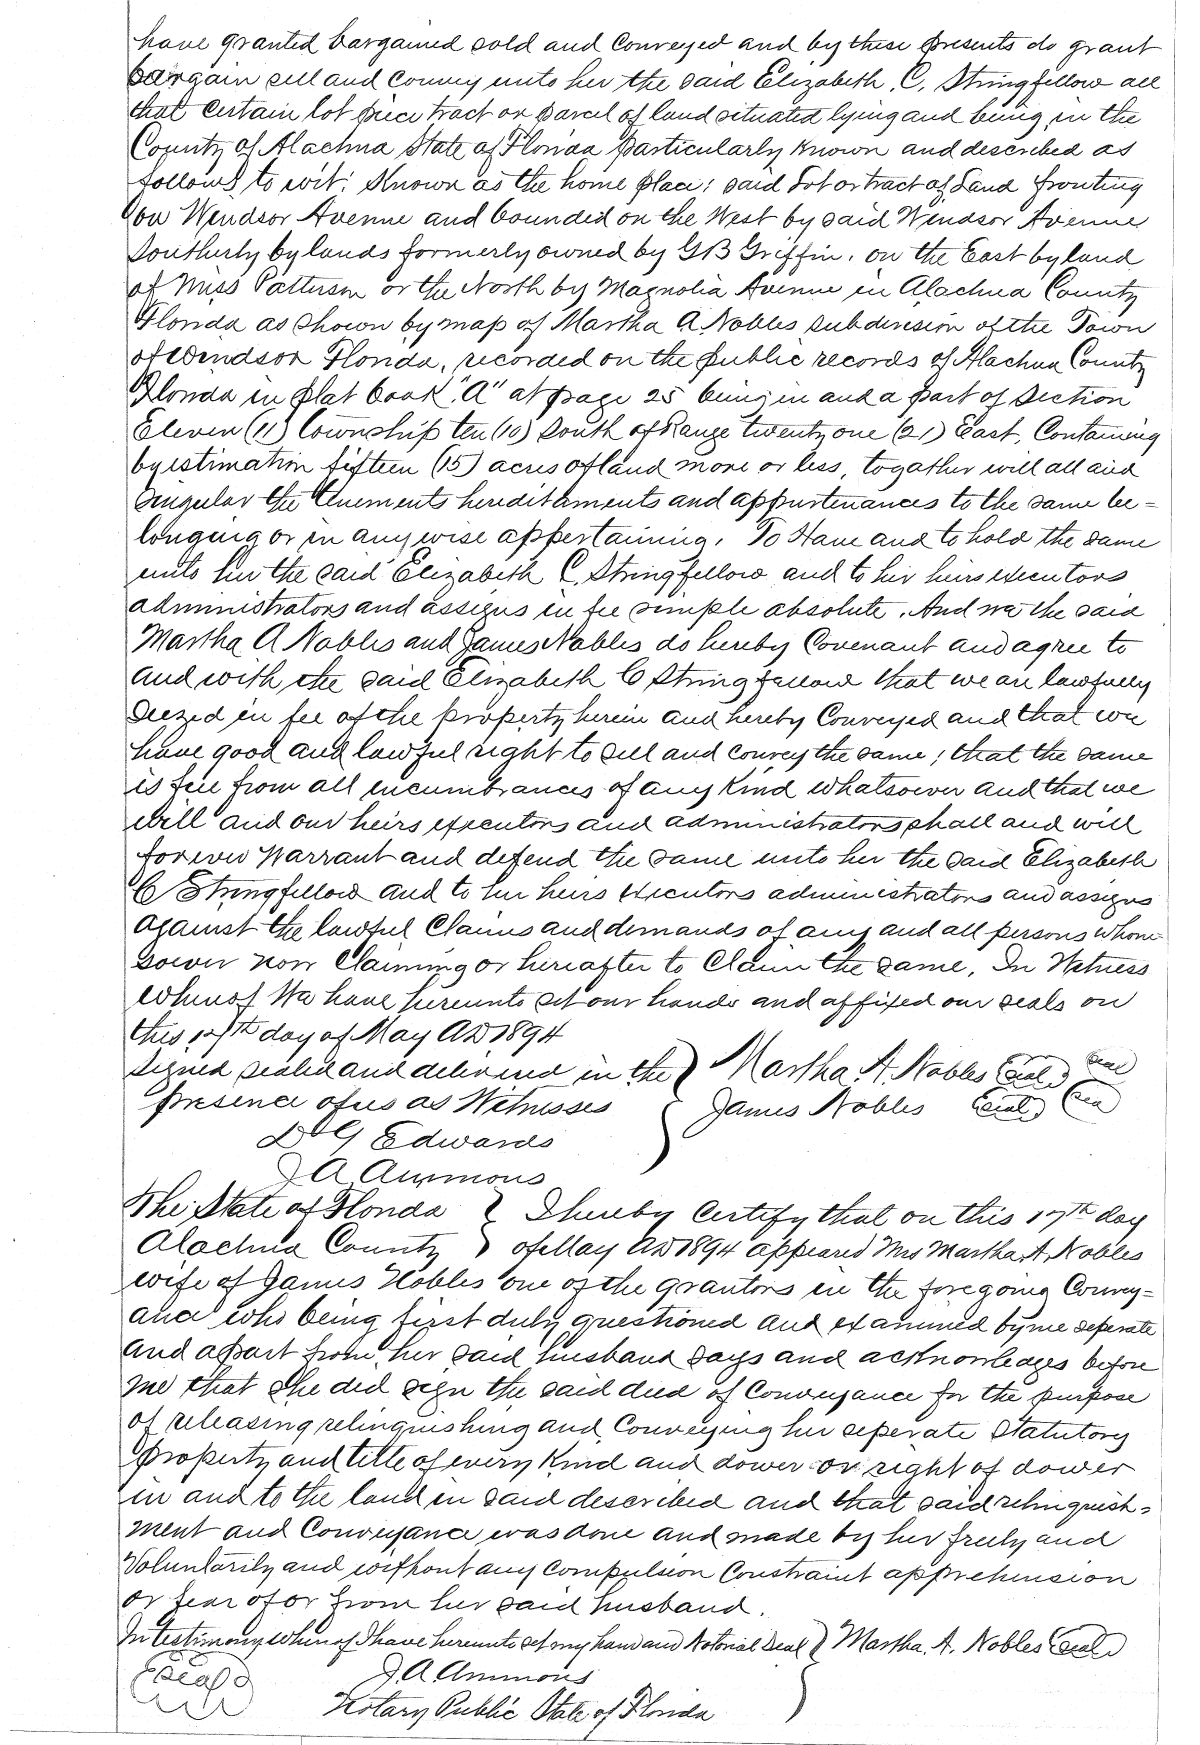 have granted bargained sold and conveyed and by these presents do grant
bargain sell and convey unto her the said Elizabeth C. Stringfellow all
that certain lot piece tract or parcel of land situated lying and being in the
County of Alachua State of Florida particularly known and described as
follows to wit: Known as the home place; said Lot or tract of Land fronting
on Windsor Avenue and bounded on the West by said Windsor Avenue
Southerly by lands formerly owned by G B Griffin, on the East by land
of Miss Patterson or the North by Magnolia Avenue in Alachua County
Florida as shown by map of Martha A Nobles subdivision of the Town
of Windsor Florida, recorded on the public records of Alachua County
Florida in plat book "A" at page 25 being in and a part of Section
Eleven (11) Township ten (10) South of Range twenty one (21) East, Containing
by estimation fifteen (15) acres of land more or less, togather will all and
singular the tenements hereditaments and appurtenances to the same be=
longing or in any wise appertaining, To Have and to hold the same
unto her the said Elizabeth C. Stringfellow and to her heirs executors
administrators and assigns in fee simple absolute. And we the said
Martha A Nobles and James Nobles do hereby Covenant and agree to
and with the said Elizabeth C Stringfellow that we are lawfully
Siezed in fee of the property herein and hereby Conveyed and that we
have good and lawful right to sell and convey the same; that the same
is free from all incumbrances of any Kind whatsoever and that we
will and our heirs executors and administrators shall and will
forever Warrant and defend the same unto her the said Elizabeth
C Stringfellow and to her heirs executors administrators and assigns
against the lawful Claims and demands of any and all persons whom-
soever now Claiming or hereafter to Claim the same. In Witness
Whereof We have hereunto set our hands and affixed our seals on
this 17th day of May AD 1894
Signed sealed and delivered in the } Martha. A. Nobles (seal) (seal)
presence of us as Witnesses } James Nobles (seal) (sea)
D G Edwards
J A Ammons
The State of Florida } I hereby Certify that on this 17th day
Alachua County } of May AD 1894 appeared Mrs Martha A. Nobles
wife of James Nobles one of the grantors in the foregoing Convey=
ance who being first duly questioned and examined by me seperate
and apart from her said husband says and acknowledges before
me that she did sign the said deed of Conveyance for the purpose
of releasing relinquishing and Conveying her seperate Statutory
property and title of every Kind and dower or right of dower
in and to the land in said described and that said relinquish=
ment and Conveyance was done and made by her freely and
Voluntarily and without any Compulsion Constraint apprehension
or fear of or from her said husband.
In testimony Whereof I have hereunto set my hand and Notorial Seal } Martha. A. Nobles (seal)
(Seal) J. A. Ammons
Notary Public State of Florida